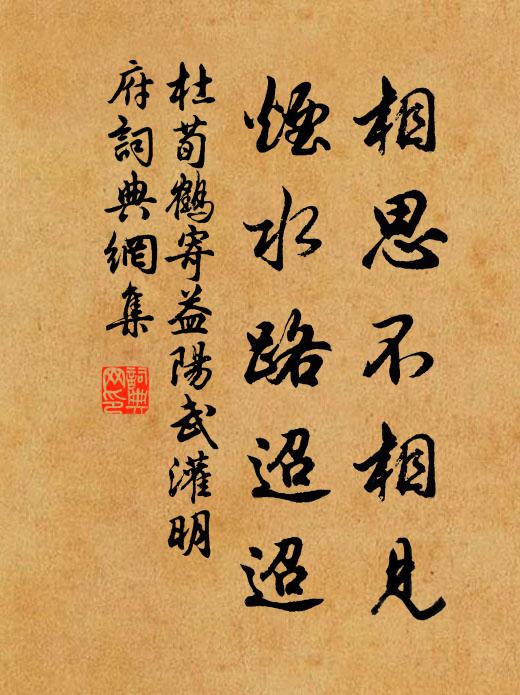 相思不相見
煙水路迢迢
杜荀鶴寄益陽武灌明
府詞典網集
詞典網印